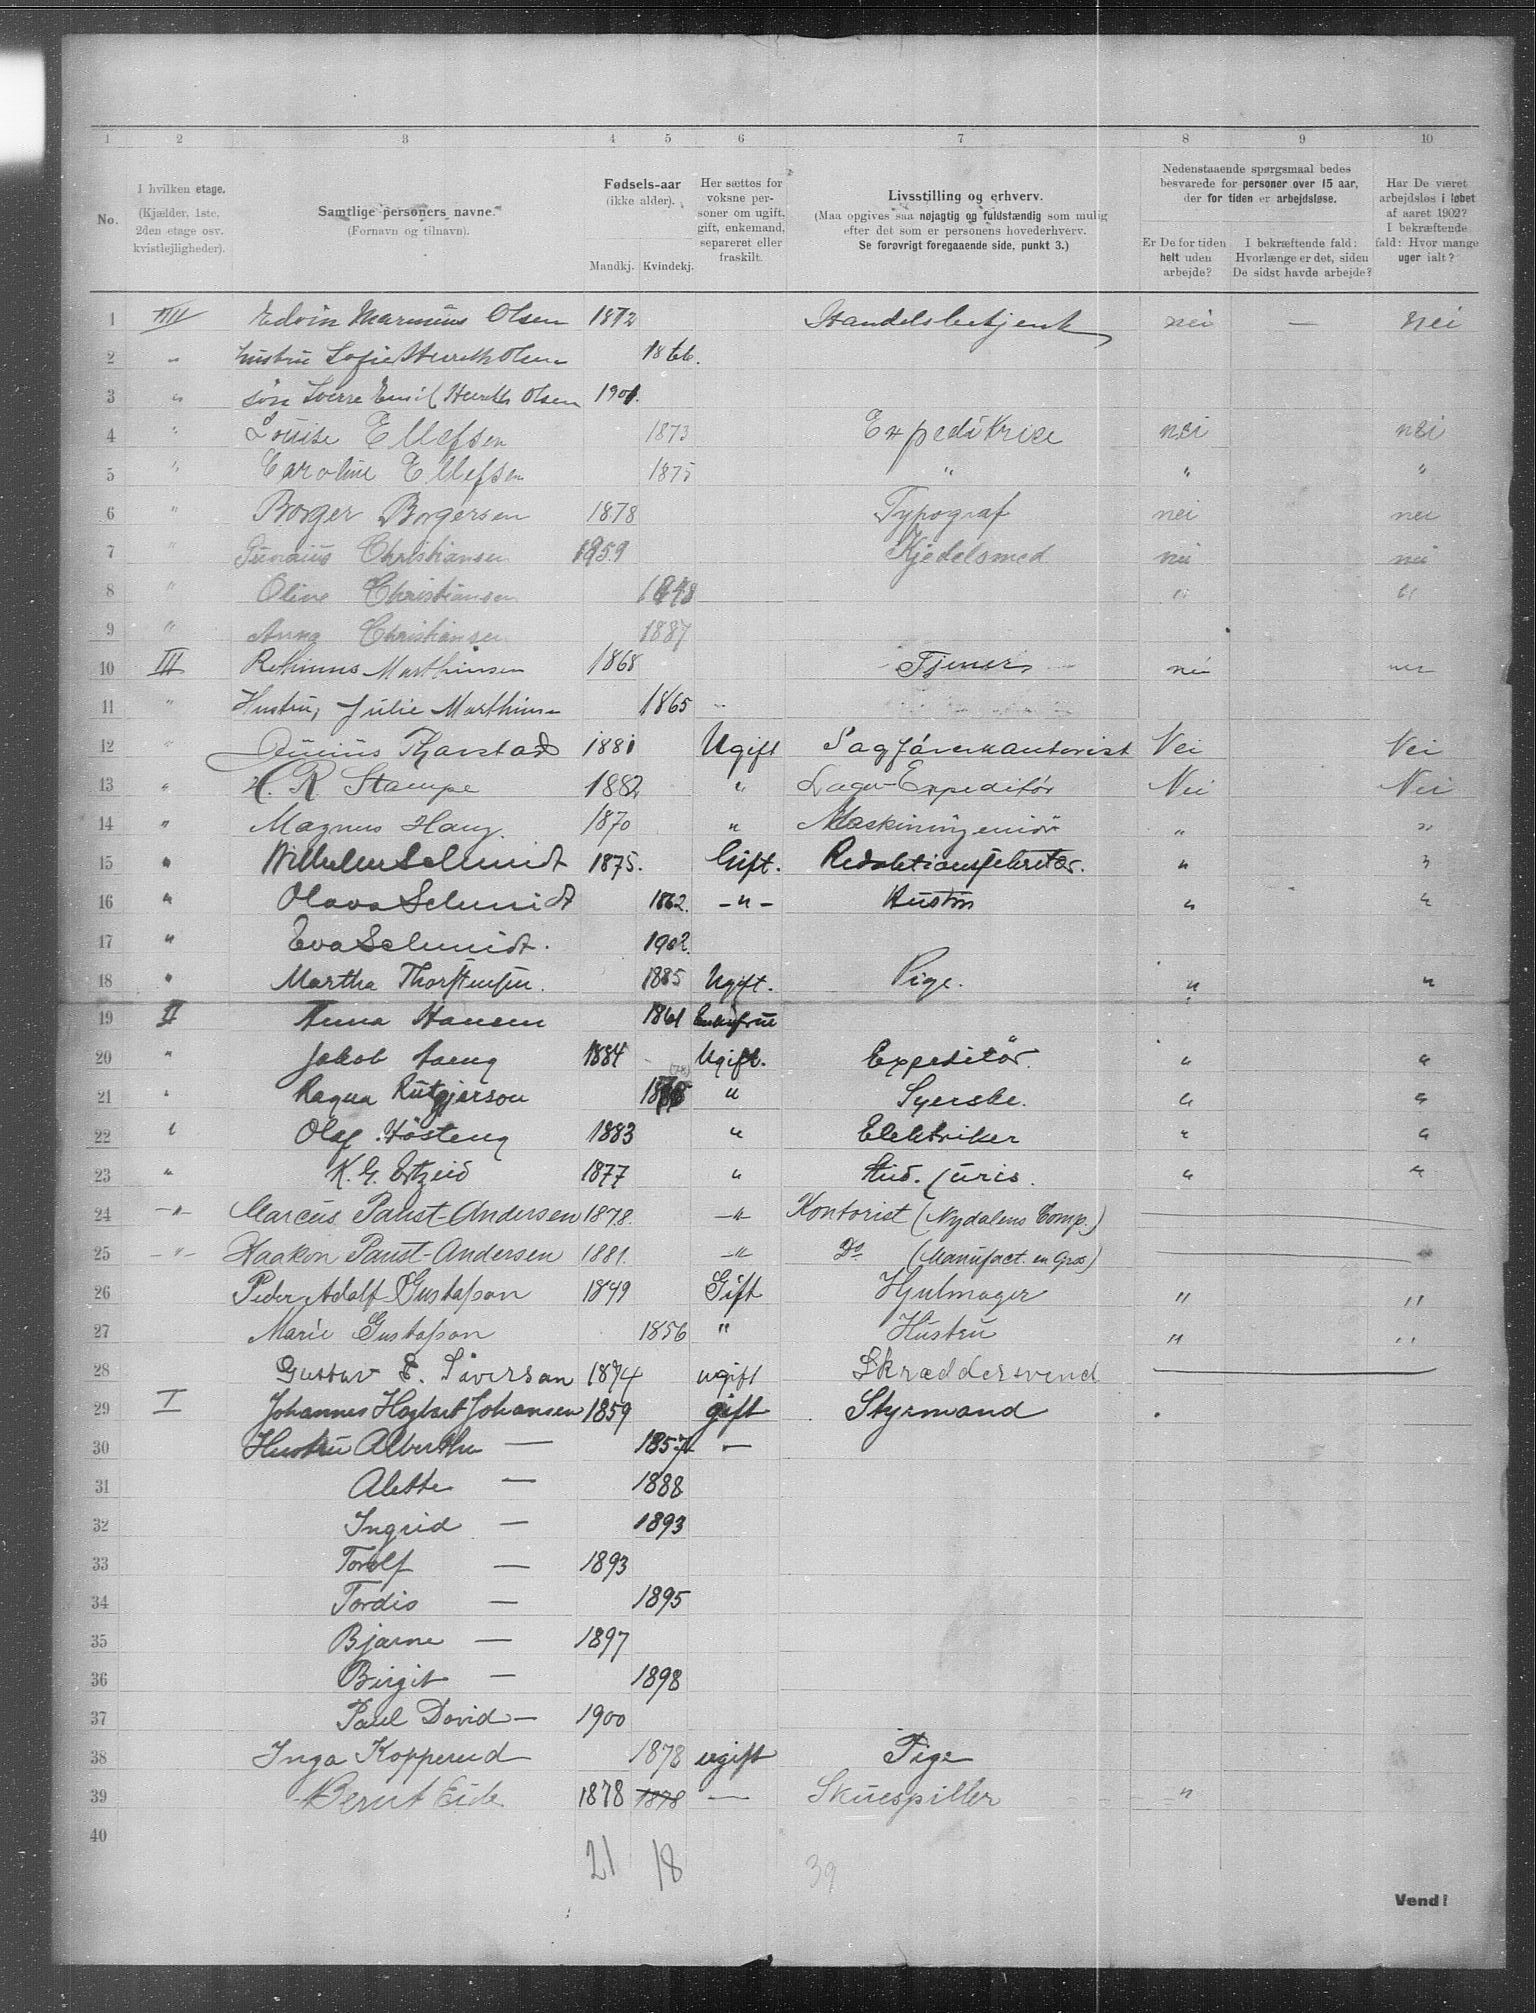 1 2 3 4 5 6 7 8 9 10
No.
I hvilken etage.
(Kjælder, 1ste, 2den etage osv. kvistlejligheder).
Samtlige personers navne.
(Fornavn og tilnavn).
Fødsels-aar
(ikke alder).
Mandkj. Kvindekj.
Her sættes for voksne personer om ugift, gift, enkemand, separeret eller fraskilt.
Livsstilling og erhverv.
(Maa opgives saa nøjagtig og fuldstændig som mulig efter det som er personens hovederhverv.
Se forøvrigt foregaaende side, punkt 3.)
Nedenstaaende spørgsmaal bedes besvarede for personer over 15 aar, der for tiden er arbejdsløse.
Er De for tiden helt uden arbejde?
I bekræftende fald: Hvorlænge er det, siden De sidst havde arbejde?
Har De været arbejdsløs i løbet af aaret 1902? I bekræftende fald: Hvor mange uger ialt?
1 IIII Edvin Marinius Olsen 1872 Handelsbetjent nei — nei
2 " hustru Sofie Olsen 1866.
3 " søn Sverre Emil Olsen 1901.
4 " Louise Ellefsen 1873 Expeditrice nei nei
5 " Caroline Ellefsen 1875 " " "
6 " Borger Borgersen 1878 Typograf nei nei
7 " Christiansen 1859 Kjedelsmed nei nei
8 " Oline Christiansen 1848 " "
9 " Anna Christiansen 1887
10 III Marthinsen 1868 Tjener nei nei
11 " Hustru, Julie Marthinsen 1865 "
12 " Junius Tjarstad 1881 Ugift Sagførerkontorist Nei Nei
13 " H. R. Stampe 1882 " Lager-Expeditör Nei Nei
14 " Magnus Haug. 1870 " Maskiningeniör " "
15 " Wilhelm Schmidt 1875. Gift. Redaktionssekretær. " "
16 " Olava Schmidt 1862. —"— Hustru " "
17 " Eva Schmidt. 1902.
18 " Martha Thorstensen. 1885 Ugift. Pige. " "
19 II Anna Hansen 1861 Enkefrue
20 " Jakob 1884 Ugift. Expeditör. " "
21 " Ragna Rütgerson (78) " Syerske. " "
22 " Olaf Høsteng 1883 " Elektriker " "
23 " K. G. 1877 " Stud. juris. " "
24 —"— Marcus Paust-Andersen 1878. —"— Kontorist (Nydalens Comp.)
25 —"— Haakon Paust-Andersen 1881. —"— Do (Manufact. en Gros)
26 Peder Adolf Gustafson 1849 Gift Hjulmager " "
27 Marie Gustafson 1856 " Hustru " "
28 Gustav E. Siverson 1874 ugift Skræddersvend
29 I Johannes Hagbart Johansen 1859 gift Styrmand
30 Hustru Alberthe — 1857 —
31 Alette — 1888
32 Ingrid — 1893
33 Torolf — 1893
34 Tordis — 1895
35 Bjarne — 1897
36 Birgit — 1898
37 Paul David — 1900
38 Inga Kopperud 1878 ugift Pige
39 Bernt Eide 1878 1878 — Skuespiller "
40
21 18 39
Vend!